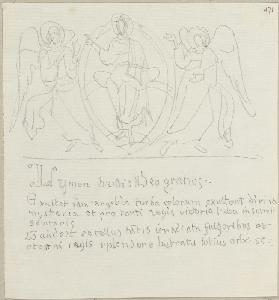 Lumen christi: Deo gratias:-
Exultet iam angelica turba celorum exultent divina
mysteria et pro tanti regis victoria tuba intonet
salutaris
Gaudeat se tellus tantis irradiata fulgoribus et
eterni regis splendore lustrata totius orbis se-